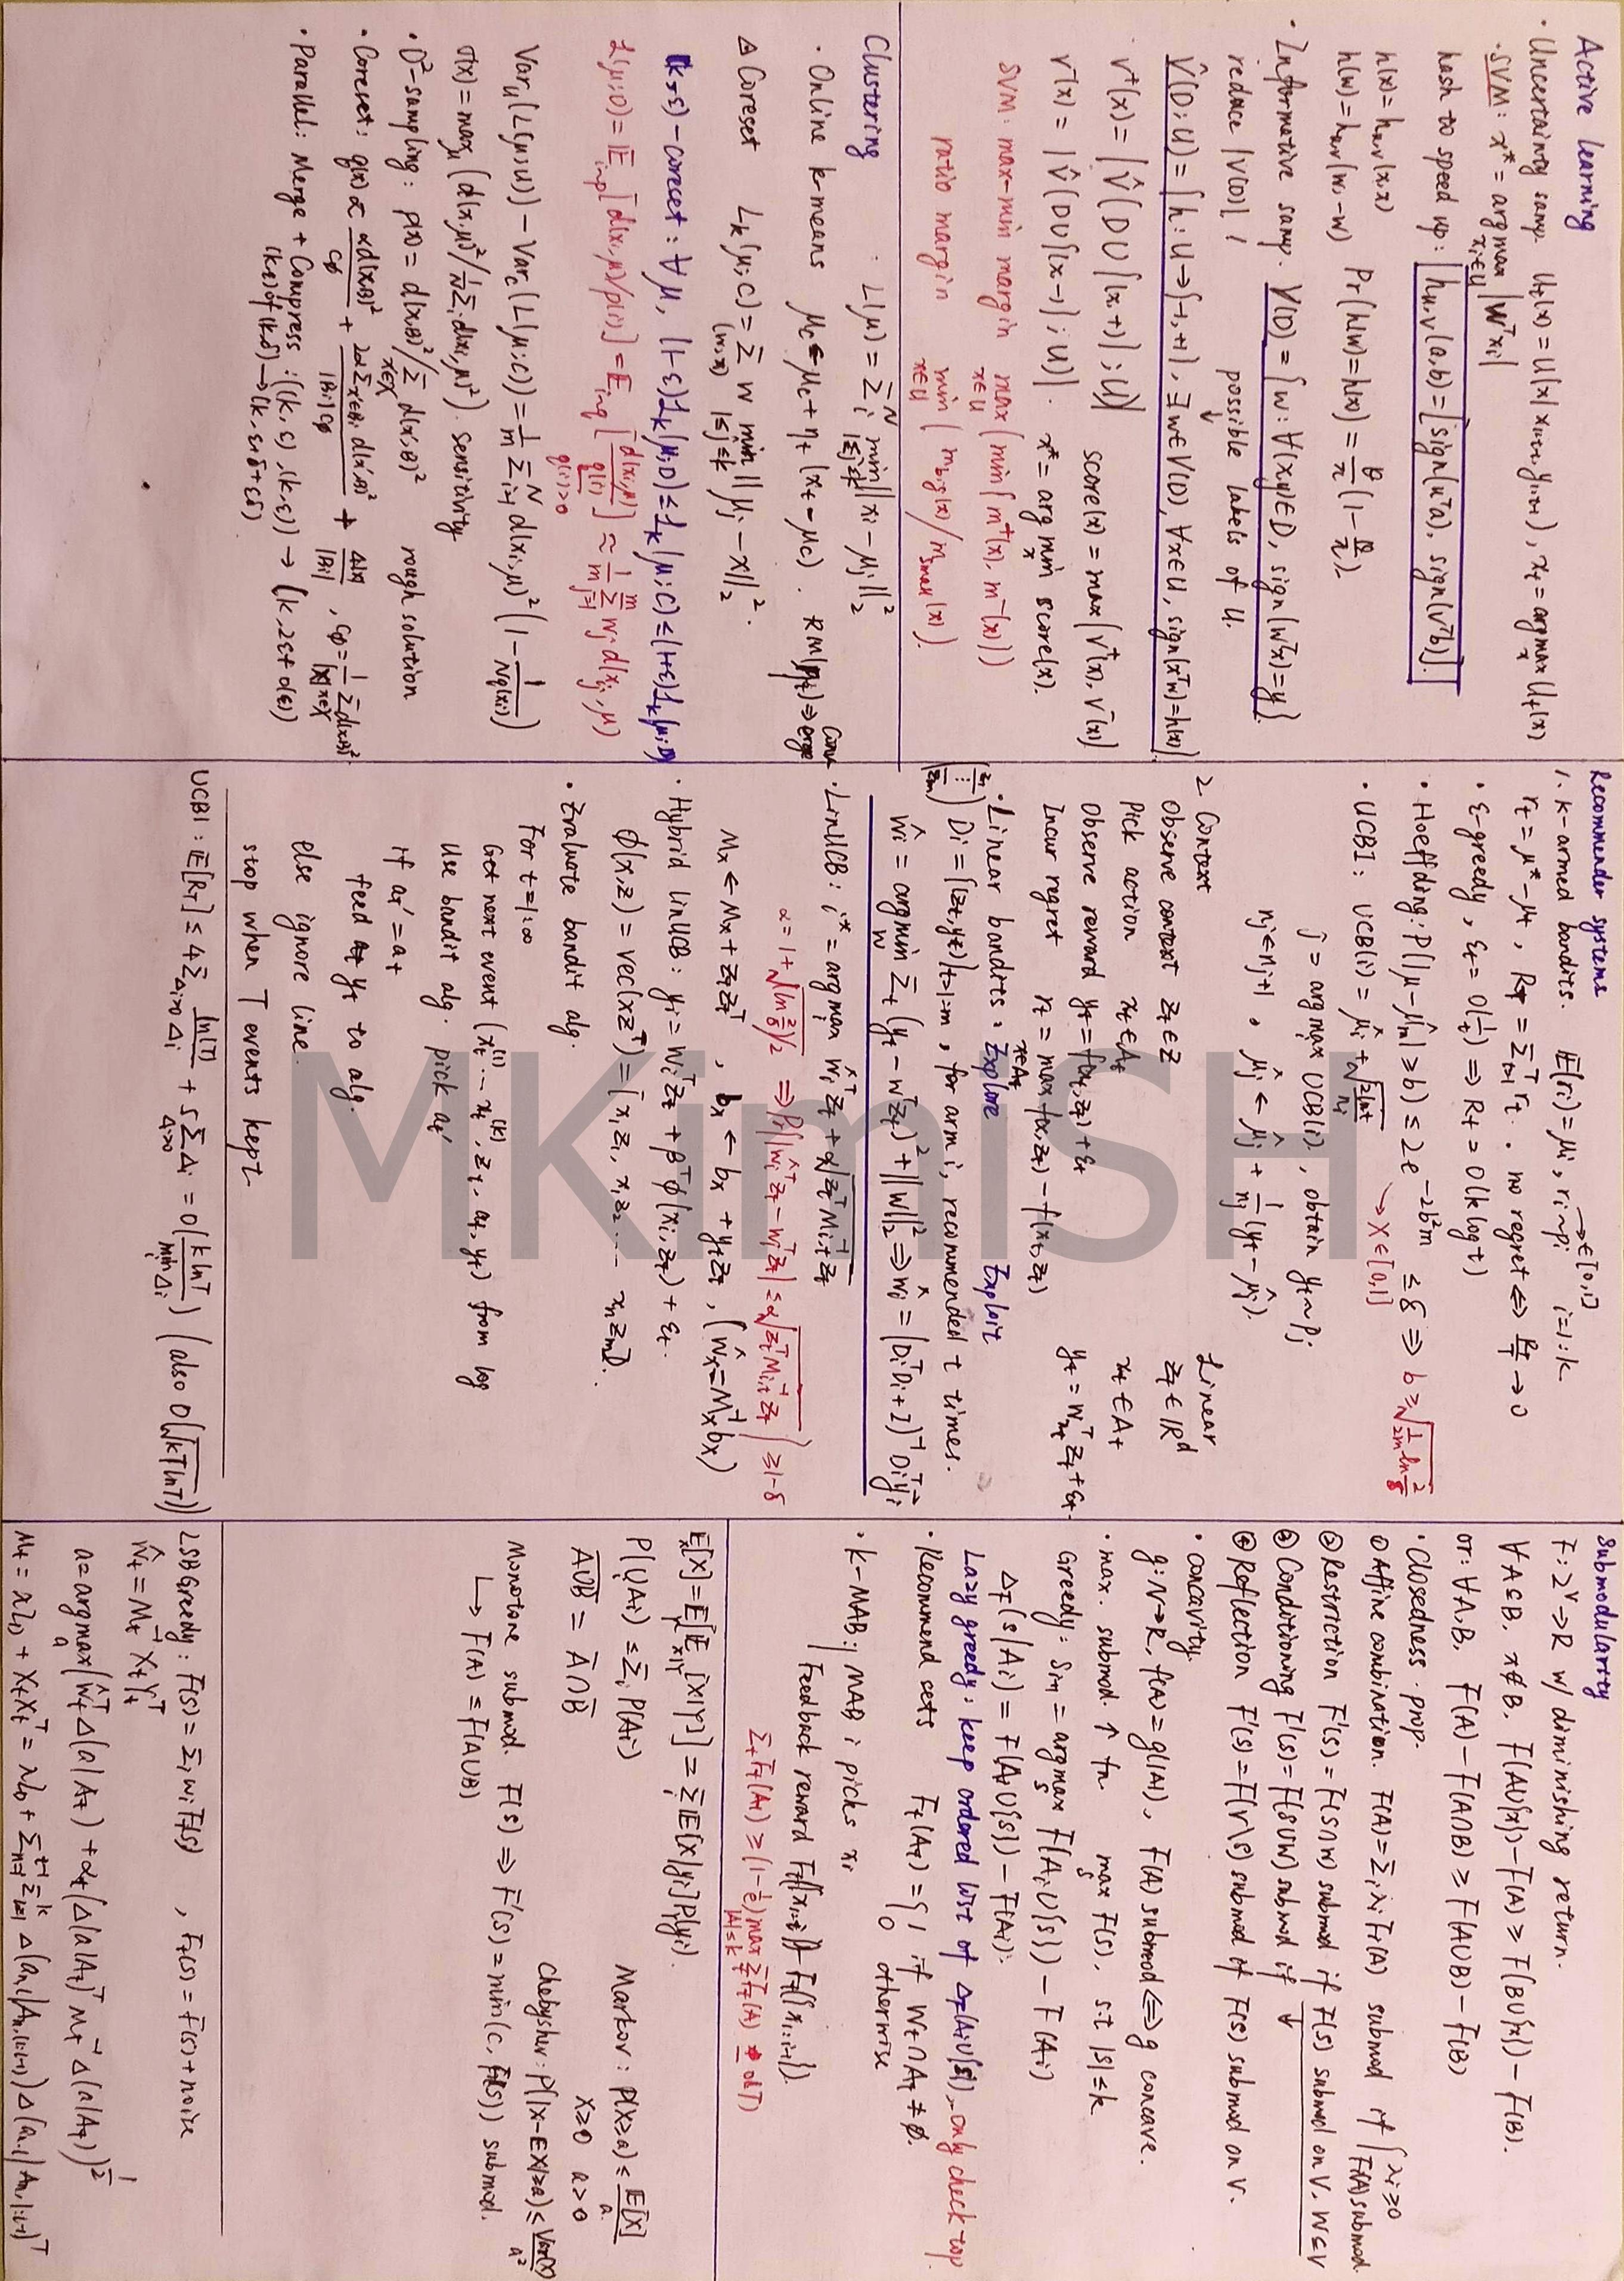 Active learning
· Uncertainty samp. Ut(x) = U(x|x1:t-1, y1:t-1), xt = argmax_x Ut(x)
· SVM: x* = arg max_{xi∈U} |wᵀxi|
hash to speed up: h_{u,v}(a,b) = [sign(uᵀa), sign(vᵀb)].
h(x) = h_{u,v}(x,x)
h(w) = h_{u,v}(w,-w) Pr(h(w)=h(x)) = θ/π (1-θ/π).
· Informative samp. V(D) = {w: ∀(x,y)∈D, sign(wᵀx)=y}.
reduce |V(D)| ! possible labels of U.
V̂(D;U) = {h: U→{-1,+1}, ∃w∈V(D), ∀x∈U, sign(xᵀw)=h(x)}
· v⁺(x) = |V̂(D∪{(x,+)};U)| score(x) = max{v⁺(x), v⁻(x)}
v⁻(x) = |V̂(D∪{(x,-)};U)|. x* = arg min_x score(x).
SVM: max-min margin max_{x∈U} (min{m⁺(x), m⁻(x)})
ratio margin min_{x∈U} (m_big(x)/m_small(x)).
Clustering : L(μ) = Σ_i^N min_{1≤j≤k} ||xi - μj||₂²
· Online k-means μc ← μc + ηt (xt - μc). RM(ηt) ⇒ Converge
Δ Coreset Lk(μ;C) = Σ_{(w,x)} w min_{1≤j≤k} ||μj - x||₂².
(k,ε)-coreset: ∀μ, (1-ε)Lk(μ;D) ≤ Lk(μ;C) ≤ (1+ε)Lk(μ;D)
L(μ;D) = E_{i~p}[d(xi,μ)/p(i)] = E_{i~q}[d(xi,μ)/q(i)] ≈ 1/m Σ_{j=1}^m wj d(xj,μ)
q(i)>0
Var_u(L(μ;U)) - Var_c(L(μ;C)) = 1/m Σ_{i=1}^N d(xi,μ)² (1 - 1/(Nq(xi)))
σ(x) = max_μ (d(x,μ)²/ 1/N Σi d(xi,μ)²). sensitivity
· D²-sampling: p(x) = d(x,B)²/Σ_{x'∈X} d(x',B)² rough solution
· Coreset: q(x) ∝ αd(x,B)²/cφ + 2αΣ_{x'∈Bi} d(x',B)²/|Bi|cφ + 4|X|/|Bi|, cφ = 1/|X| Σ_{x∈X} d(x,B)²
· Parallel: Merge + Compress: ((k,ε),(k,ε)) → (k,2ε+o(ε))
(k,ε) of (k,δ) → (k, ε+δ+εδ)
Recommender systems
1. k-armed bandits. E(ri) = μi, ri~pi → ∈[0,1] i=1:k
rt = μ* - μt, RT = Σ_{t=1}^T rt. no regret ⇔ RT/T → 0
· ε-greedy, εt = O(1/t) ⇒ Rt = O(k log t)
· Hoeffding: P(|μ-μ̂m| ≥ b) ≤ 2e^{-2b²m} ≤ δ ⇒ b ≥ √(1/2m ln 2/δ)
→ X∈[0,1]
· UCB1: UCB(i) = μ̂i + √(2lnt/ni)
j = arg max_i UCB(i), obtain yt~pj
nj ← nj+1, μ̂j ← μ̂j + 1/nj (yt - μ̂j).
2. Context Linear
Observe context zt∈Z zt∈ℝᵈ
Pick action xt∈At xt∈At
Observe reward yt = f(xt,zt)+εt yt = w_{xt}ᵀ zt + εt.
Incur regret rt = max_{x∈At} f(x,zt) - f(xt,zt)
· Linear bandits: Explore Exploit
(z1 ⋮ zm) Di = {(zt,yt)}t=1:m, for arm i, recommended t times.
ŵi = argmin_w Σt (yt - wᵀzt)² + ||w||₂² ⇒ ŵi = (DiᵀDi+I)⁻¹Diᵀyi
· LinUCB: i* = argmax_i ŵiᵀzt + α√(ztᵀMi,t⁻¹zt)
α = 1+√(ln(2/δ)/2) ⇒ P{|ŵiᵀzt - wiᵀzt| ≤ α√(ztᵀMi,t⁻¹zt)} ≥ 1-δ
Mx ← Mx + ztztᵀ, bx ← bx + ytzt, (ŵx = Mx⁻¹bx)
· Hybrid linUCB: yi = wiᵀzt + βᵀφ(xi,zt) + εt.
φ(x,z) = vec(xzᵀ) = [x1z1, x1z2 ... xnzm].
· Evaluate bandit alg.
For t=1:∞
Get next event (xt⁽¹⁾...xt⁽ᵏ⁾, zt, at, yt) from log
Use bandit alg. pick at'
if at' = at
feed yt to alg.
else ignore line.
stop when T events kept.
UCB1: E[RT] ≤ 4Σ_{Δi>0} ln(T)/Δi + 5Σ_{Δi>0} Δi = O(k lnT / min_i Δi) (also O(√(kT lnT)))
Submodularity
F: 2ⱽ → R w/ diminishing return.
∀A⊆B, x∉B, F(A∪{x}) - F(A) ≥ F(B∪{x}) - F(B).
or: ∀A,B, F(A) - F(A∩B) ≥ F(A∪B) - F(B)
· Closedness prop.
① Affine combination. F(A) = Σi λi Fi(A) submod if {λi≥0, Fi(A) submod.
② Restriction F'(S) = F(S∩W) submod if F(S) submod on V, W⊆V
③ Conditioning F'(S) = F(S∪W) submod if ↓
④ Reflection F'(S) = F(V\S) submod if F(S) submod on V.
· Concavity.
g: N→R, F(A) = g(|A|), F(A) submod ⇔ g concave.
· max. submod. ↑ fn max_S F(S), s.t |S| ≤ k
Greedy: S_{i+1} = argmax_s F(Ai∪{s}) - F(Ai)
Δ_F(s|Ai) = F(Ai∪{s}) - F(Ai).
Lazy greedy: keep ordered list of Δ_F(Ai∪{s}), only check top
· Recommend sets Ft(At) = {1 if Wt∩At ≠ ∅.
0 otherwise
· k-MAB: MAB i picks xi
Feedback reward Ft({x1:i}) - Ft({x1:i-1}).
Σt Ft(At) ≥ (1-1/e) max_{|A|≤k} Σt Ft(A) - o(T)
E_x[X] = E_Y[E_{X|Y}[X|Y]] = Σi E[X|yi]P(yi).
P(∪Ai) ≤ Σi P(Ai) Markov: P(X≥a) ≤ E[X]/a
X≥0 a>0
A∪B = A∩B Chebyshev: P(|X-EX|≥a) ≤ Var(X)/a²
Monotone submod. F(S) ⇒ F'(S) = min(c, F(S)) submod.
→ F(A) ≤ F(A∪B)
LSBGreedy: F(S) = Σi wi Fi(S), Ft(S) = F(S) + noise
ŵt = Mt⁻¹XtYtᵀ
a = argmax_a (ŵtᵀΔ(a|At) + αt(Δ(a|At)ᵀ Mt⁻¹ Δ(a|At))^{1/2}
Mt = λID + XtXtᵀ = λID + Σ_{n=1}^{t-1} Σ_{i=1}^k Δ(an,i|An,1:i-1)Δ(an,i|An,1:i-1)ᵀ
MKimiSH